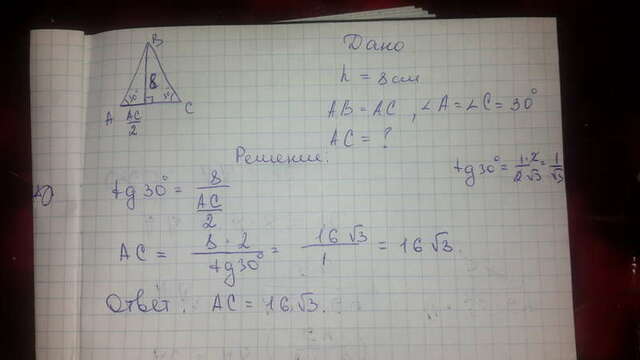 B
30° 8 30°
A AC/2 C
Дано
h = 8 см
AB = AC , ∠A = ∠C = 30°
AC = ?
Решение:
tg 30° = (1·2)/(2·√3) = 1/√3
tg 30° = 8/(AC/2)
AC = (8 · 2)/(tg 30°) = (16√3)/1 = 16√3.
Ответ: AC = 16√3.